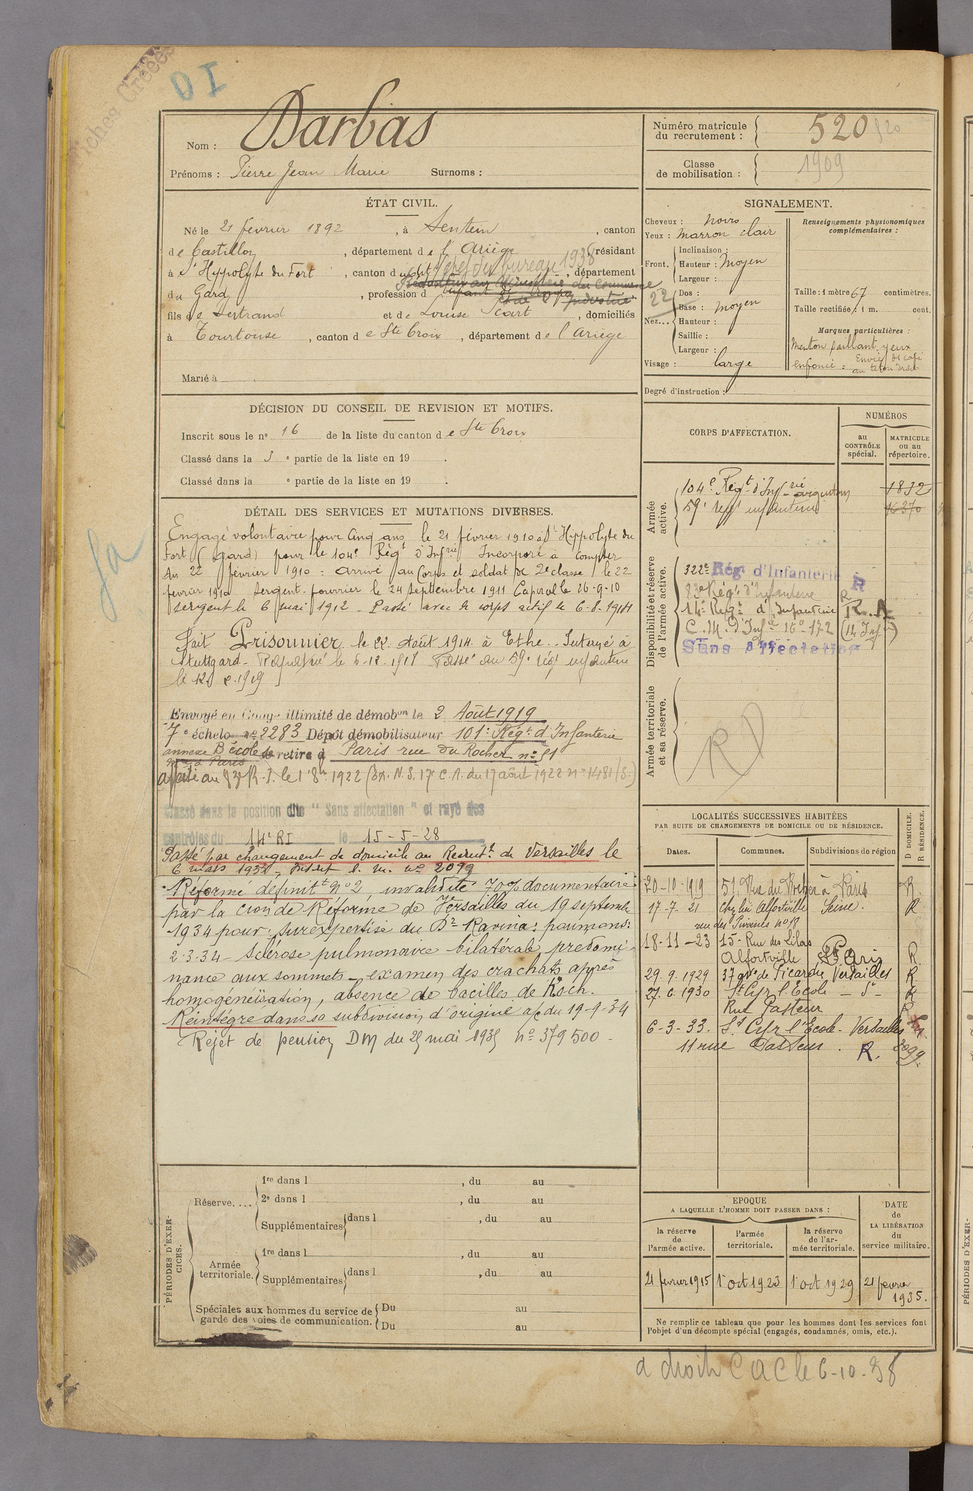 Fiches Créées
DI
Nom : Darbas
Prénoms : Pierre Jean Marie Surnoms :
Numéro matricule du recrutement : 520 520
Classe de mobilisation : 1909
ÉTAT CIVIL.
Né le 21 février 1892, à Sentein, canton
de Castillon, département de l'Ariège, résidant
à St Hippolyte du Fort, canton dudit, chef de bureau 1938, département
du Gard, profession d
fils de Bertrand et de Louise Icart, domiciliés
à Tourtouse, canton de Ste Croix, département de l'Ariège
Marié à
SIGNALEMENT.
Cheveux : noirs
Yeux : marron clair
Front. Inclinaison :
Hauteur : moyen
Largeur :
22
Nez... Dos :
Base : moyen
Hauteur :
Saillie :
Largeur :
Visage : large
Renseignements physionomiques complémentaires :
Taille : 1 mètre 67 centimètres.
Taille rectifiée : 1 m. cent.
Marques particulières :
Menton saillant, yeux
enfoncés : Envie de café
au téton droit
Degré d'instruction :
DÉCISION DU CONSEIL DE REVISION ET MOTIFS.
Inscrit sous le n° 16 de la liste du canton de Ste Croix
Classé dans la 3e partie de la liste en 19 .
Classé dans la e partie de la liste en 19 .
DÉTAIL DES SERVICES ET MUTATIONS DIVERSES.
Engagé volontaire pour cinq ans, le 21 février 1910 à St Hippolyte du
Fort (Gard) pour le 104e Régt d'Infrie Incorporé à compter
du 22 février 1910 : arrivé au corps et soldat de 2e classe le 22
février 1910 Caporal le 26-9-10
sergent fourrier le 24 septembre 1911
sergent le 6 mai 1912 - Passé avec le corps actif le 6-8-1914
Fait Prisonnier le 22 août 1914 à Ethe. Interné à
Stuttgard - Rapatrié le Passé au 59e rég infanterie
le
Envoyé en Congé illimité de démobon le 2 Août 1919
7e échelon n° 2283 Dépôt démobilisateur 101e Régt d'Infanterie
se retire à Paris rue du Rocher n° 51
affecté au le 1 8bre 1922 (DM. N.S. 17 C.A. du 17 août 1922 n° 1481/S.)
Classé dans la position dite "Sans affectation" et rayé des
contrôles du 14e RI le 15-5-28
Passé par changement de domicile au Recrutt de Versailles le
6 mars 1933 n° 2099
Réformé définitt n° 2, invalidité 70% documentaire
par la Cion de Réforme de Versailles du 19 septembre
1934 pour : surexpertise du Dr Ravina : poumons :
2-3-34 - Sclérose pulmonaire bilatérale prédomi-
nance aux sommets - examen des crachats après
homogénéisation, absence de bacilles de Koch.
Réintégré dans sa subdivision d'origine a/c du 19-9-34
Rejet de pension DM du 25 mai 1935 n° 379500 -
CORPS D'AFFECTATION.
NUMÉROS
au CONTRÔLE spécial.
MATRICULE ou au répertoire.
Armée active.
104e Régt d'Infrie Argentan 1832
59e regt infanterie 16370
Disponibilité et réserve de l'armée active.
322e Rég. d'Infanterie R
Régt d'Infanterie
14e Régt d'Infanterie R.A
C.M. d'Infie 16e-172 (14 Inf)
Sans Affectation
Armée territoriale et sa réserve.
RD
LOCALITÉS SUCCESSIVES HABITÉES
PAR SUITE DE CHANGEMENTS DE DOMICILE OU DE RÉSIDENCE.
Dates. Communes. Subdivisions de région
D DOMICILE.
R RÉSIDENCE.
20-10-1919 51, Rue du Rocher à Paris R
17-7.21 Alfortville Seine. R
18-11-23 15 - Rue des Lilas
Alfortville Paris R
29.9.1929 37 av de Picardie Versailles R
27.6.1930 St Cyr l'Ecole - do - R
Rue Pasteur
6-3-33. St Cyr l'Ecole - Versailles
11 rue Pasteur. R. 2099
PÉRIODES D'EXERCICES.
Réserve....
1re dans l , du au
2e dans l , du au
Supplémentaires dans l , du au
Armée territoriale.
1re dans l , du au
Supplémentaires dans l , du au
Spéciales aux hommes du service de garde des voies de communication.
Du au
Du au
EPOQUE
A LAQUELLE L'HOMME DOIT PASSER DANS :
la réserve de l'armée active.
l'armée territoriale.
la réserve de l'armée territoriale.
DATE de LA LIBÉRATION du service militaire.
21 février 1915
1er oct 1923
1er oct 1929
21 février 1935.
Ne remplir ce tableau que pour les hommes dont les services font
l'objet d'un décompte spécial (engagés, condamnés, omis, etc.).
a droit C A C le 6-10-38
PÉRIODES D'EXER-